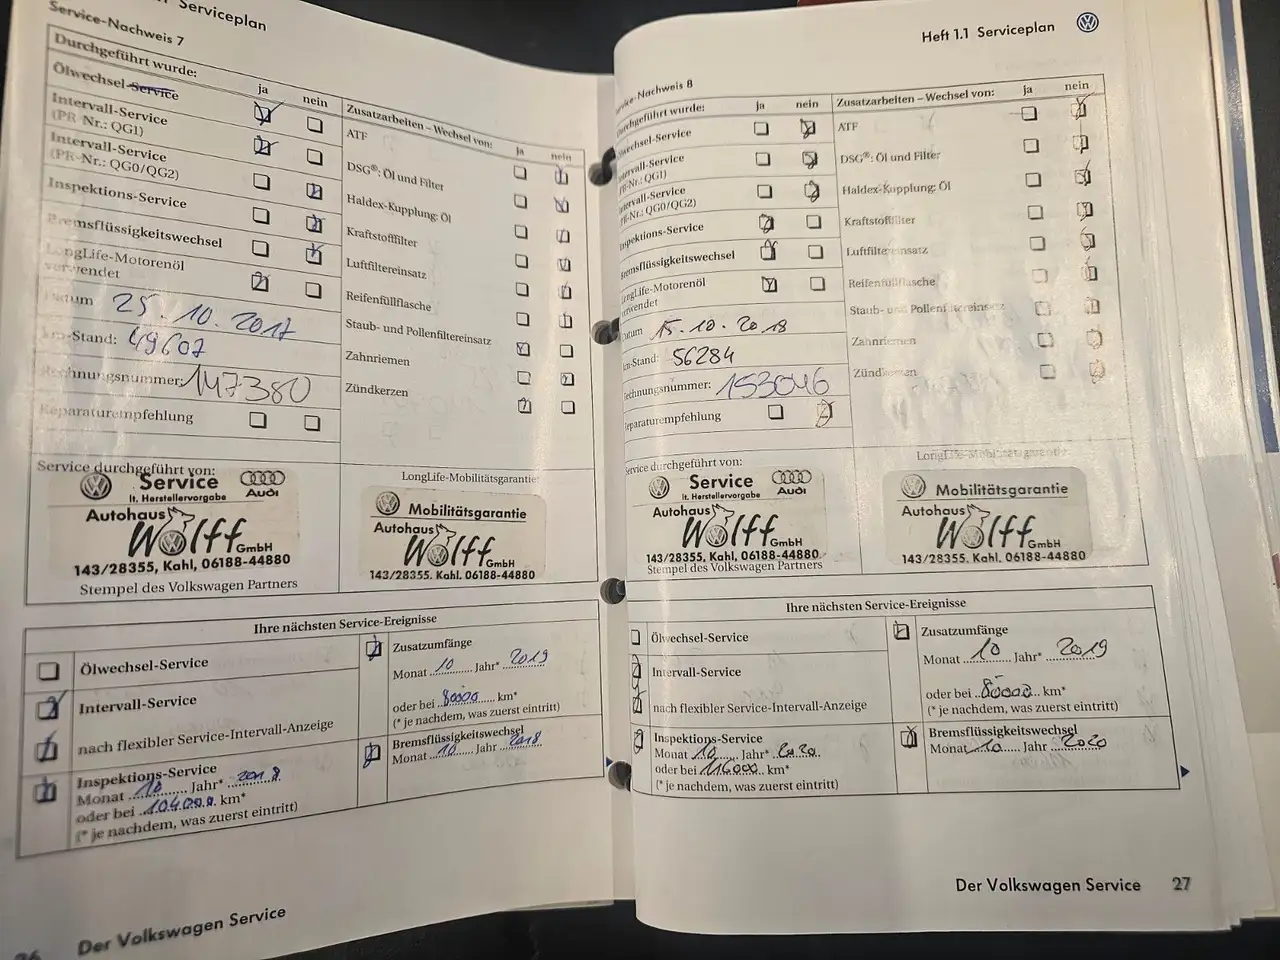 Serviceplan
Service-Nachweis 7
Durchgeführt wurde:
ja
nein
Ölwechsel-Service
Intervall-Service
(PR-Nr.: QG1)
Intervall-Service
(PR-Nr.: QG0/QG2)
Inspektions-Service
Bremsflüssigkeitswechsel
LongLife-Motorenöl
verwendet
Datum 25.10.2017
km-Stand: 49607
Rechnungsnummer: 147380
Reparaturempfehlung
Zusatzarbeiten – Wechsel von:
ja
nein
ATF
DSG®: Öl und Filter
Haldex-Kupplung: Öl
Kraftstofffilter
Luftfiltereinsatz
Reifenfüllflasche
Staub- und Pollenfiltereinsatz
Zahnriemen
Zündkerzen
Service durchgeführt von:
Service
lt. Herstellervorgabe
Audi
Autohaus
Wolff
GmbH
143/28355, Kahl, 06188-44880
Stempel des Volkswagen Partners
LongLife-Mobilitätsgarantie
Mobilitätsgarantie
Autohaus
Wolff
GmbH
143/28355. Kahl. 06188-44880
Ihre nächsten Service-Ereignisse
Ölwechsel-Service
Intervall-Service
nach flexibler Service-Intervall-Anzeige
Inspektions-Service
Monat 10 Jahr* 2018
oder bei 104000 km*
(* je nachdem, was zuerst eintritt)
Zusatzumfänge
Monat 10 Jahr* 2019
oder bei 80000 km*
(* je nachdem, was zuerst eintritt)
Bremsflüssigkeitswechsel
Monat 10 Jahr 2018
Der Volkswagen Service
Heft 1.1 Serviceplan
Service-Nachweis 8
Durchgeführt wurde:
ja
nein
Ölwechsel-Service
Intervall-Service
(PR-Nr.: QG1)
Intervall-Service
(PR-Nr.: QG0/QG2)
Inspektions-Service
Bremsflüssigkeitswechsel
LongLife-Motorenöl
verwendet
Datum 15.10.2018
km-Stand: 56284
Rechnungsnummer: 153046
Reparaturempfehlung
Zusatzarbeiten – Wechsel von:
ja
nein
ATF
DSG®: Öl und Filter
Haldex-Kupplung: Öl
Kraftstofffilter
Luftfiltereinsatz
Reifenfüllflasche
Staub- und Pollenfiltereinsatz
Zahnriemen
Zündkerzen
Service durchgeführt von:
Service
lt. Herstellervorgabe
Audi
Autohaus
Wolff
GmbH
143/28355, Kahl, 06188-44880
Stempel des Volkswagen Partners
LongLife-Mobilitätsgarantie
Mobilitätsgarantie
Autohaus
Wolff
GmbH
143/28355, Kahl, 06188-44880
Ihre nächsten Service-Ereignisse
Ölwechsel-Service
Intervall-Service
nach flexibler Service-Intervall-Anzeige
Inspektions-Service
Monat 10 Jahr* 2020
oder bei 116000 km*
(* je nachdem, was zuerst eintritt)
Zusatzumfänge
Monat 10 Jahr* 2019
oder bei 80000 km*
(* je nachdem, was zuerst eintritt)
Bremsflüssigkeitswechsel
Monat 10 Jahr 2020
Der Volkswagen Service 27